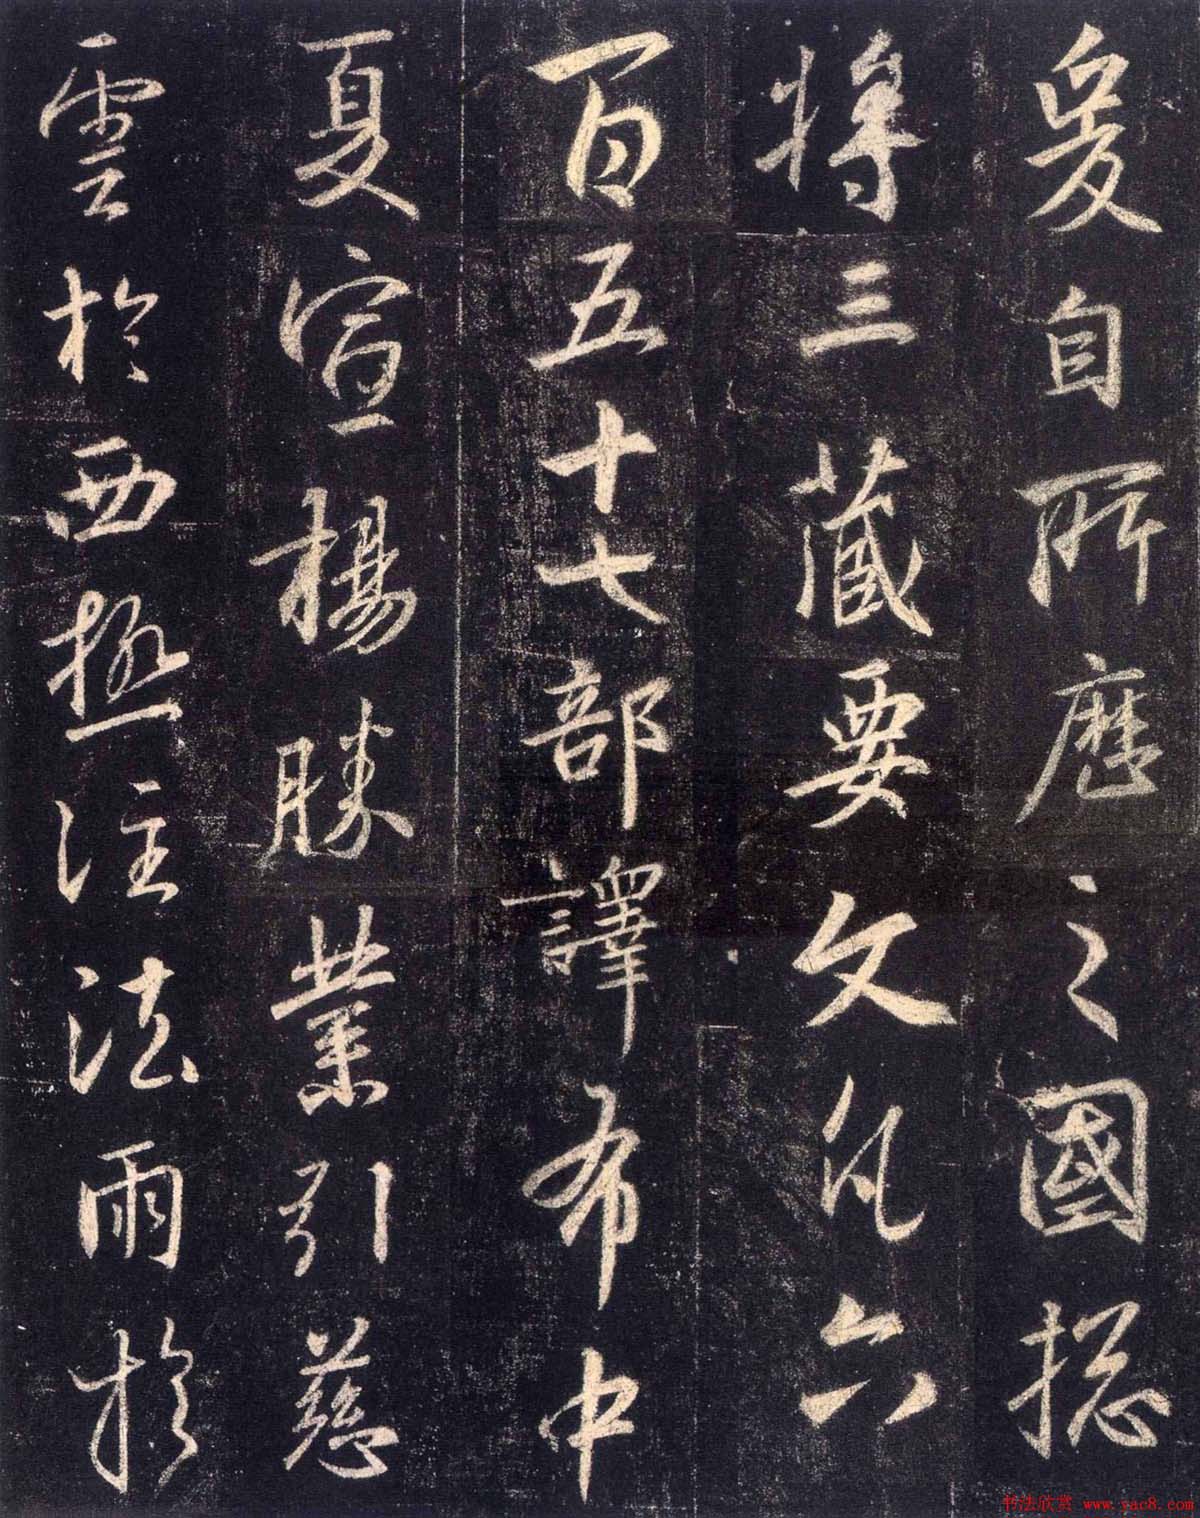 爰自所歷之國揔
將三藏要文凡六
百五十七部譯布中
夏宣楊勝業引慈
雲於西極注法雨於
书法欣赏 www.yac8.com